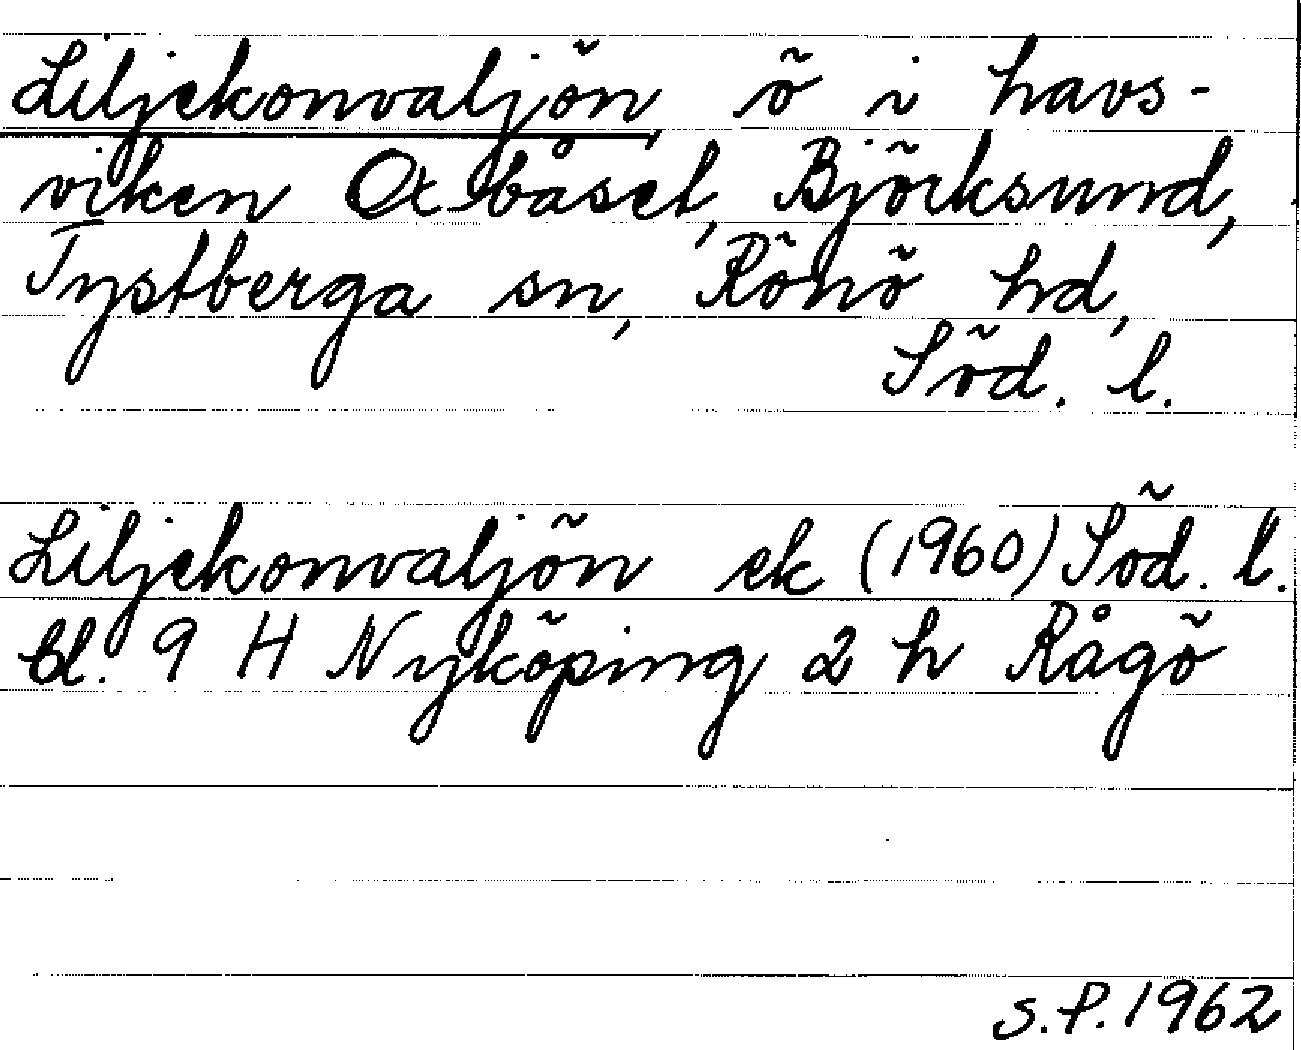 Liljekonvaljön, ö i havs-
viken Oxbåset, Björksund,
Tystberga sn, Rönö hd,
Söd. l.
Liljekonvaljön ek (1960) Söd. l.
bl. 9 H Nyköping 2 h Rågö
S.P. 1962